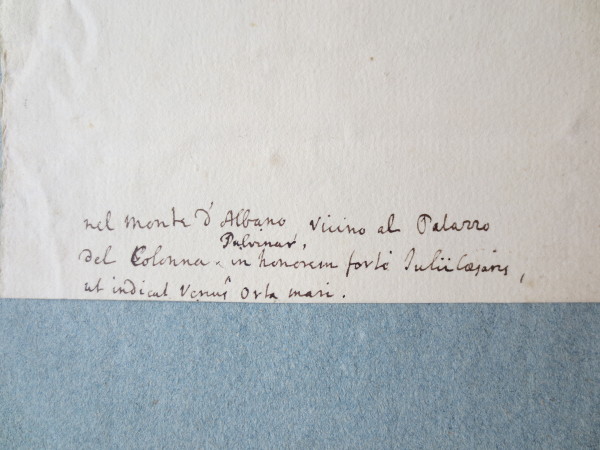 nel monte d'Albano vicino al Palazzo
Pulvinar,
del Colonna ‸ in honorem forte Julii Cæsaris,
ut indicat Venus Orta mari.